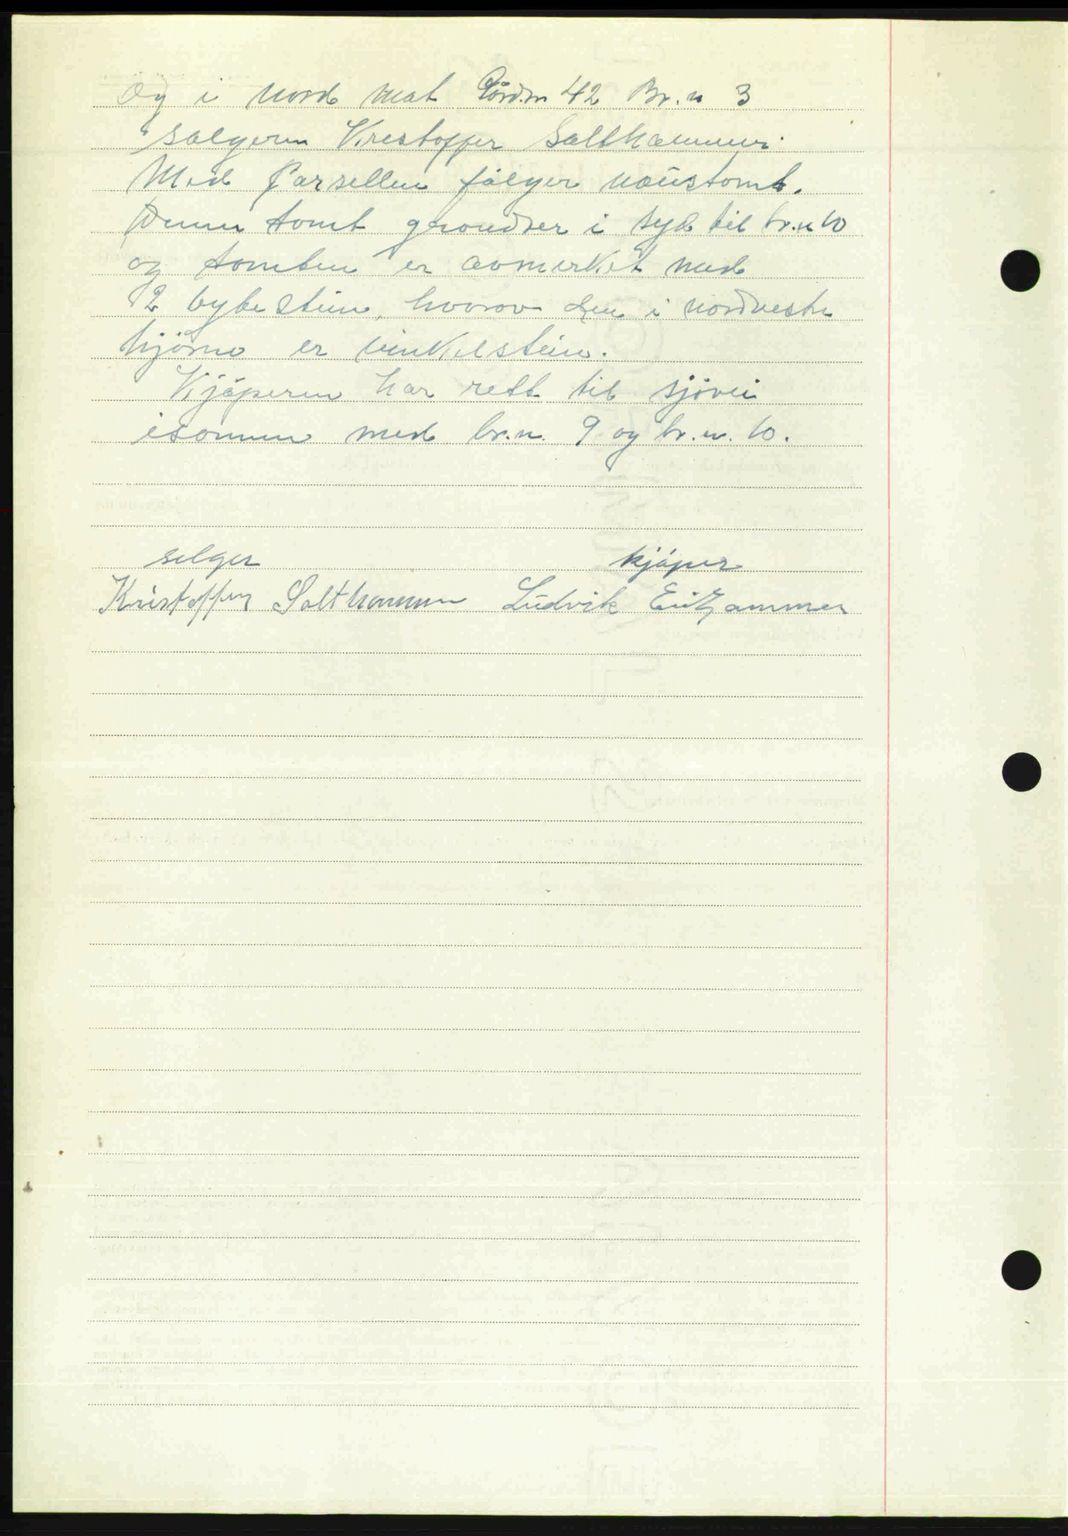 Og i nord mot Gårdsn 42 Br. n 3
sælgeren Krestoffer Salthammer.
Med Parsellen fålger naustomt.
Denne tomt grendser i syd til br.n 10
og tomten er avmerket med
2 bytesteine, hvorav den i nordvestre
hjørne er vinkelstein.
Kjøperen har rett til sjøvei
isammen med br.n. 9 og br.n. 10.
selger kjøper
Kristoffer Salthammer Ludvik